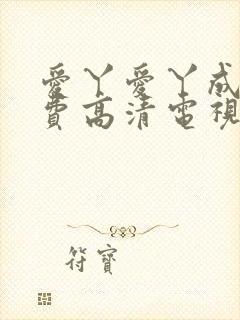 愛丫愛丫成
費高清電視
符寶